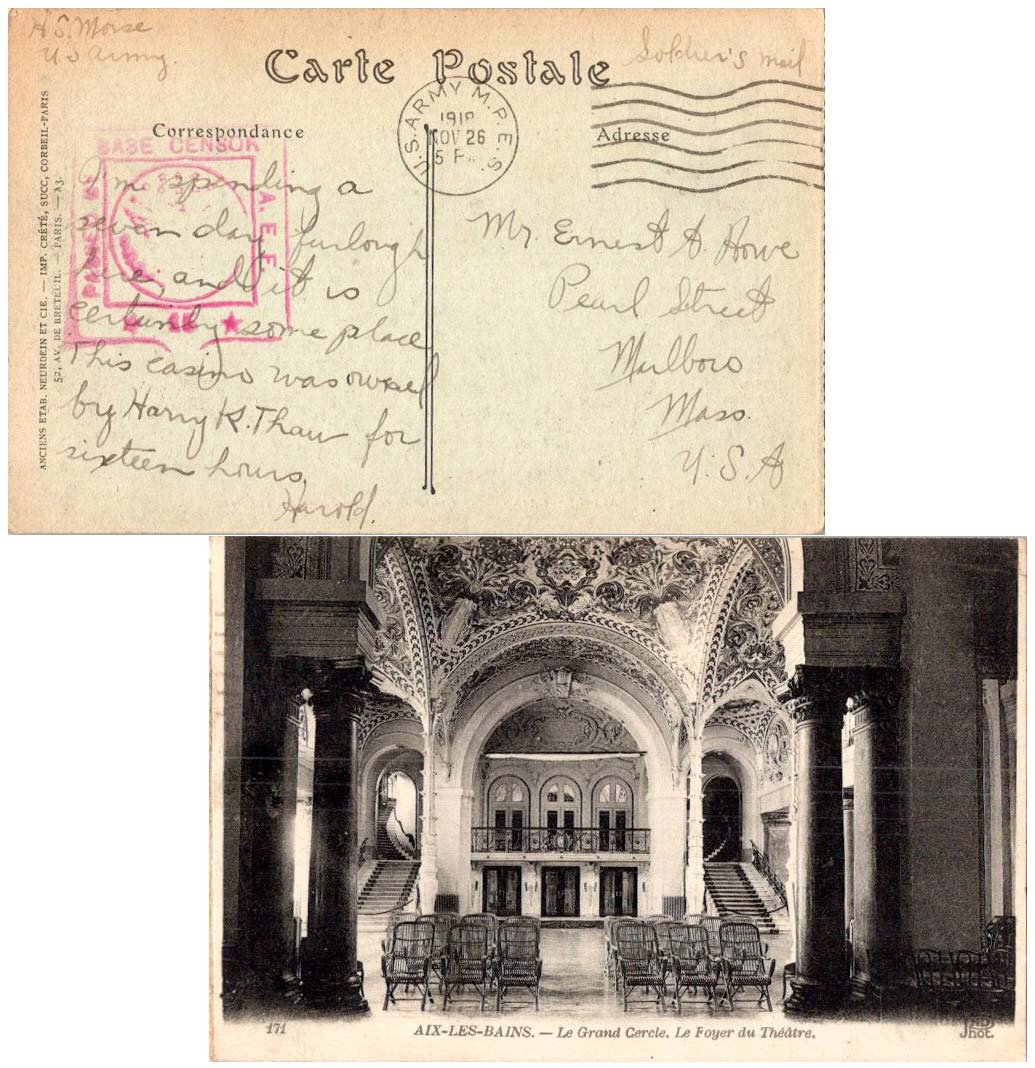 H S. Morse
US Army.
Carte Postale
Soldier's mail
Correspondance
U.S. ARMY M.P.E.S.
1918
NOV 26
5 P
Adresse
BASE CENSOR
A. E. F.
I'm spending a
seven day furlough
here, and it is
certainly some place
This casino was owned
by Harry K. Thaw for
sixteen hours.
Harold.
Mr. Ernest A. Howe
Pearl Street
Marlboro
Mass.
U. S. A
ANCIENS ETAB. NEURDEIN ET CIE. — IMP. CRÉTÉ, SUCC, CORBEIL-PARIS
52, AV. DE BRETEUIL. — PARIS. — A3.
171
AIX-LES-BAINS. — Le Grand Cercle. Le Foyer du Théâtre.
ND
Phot.